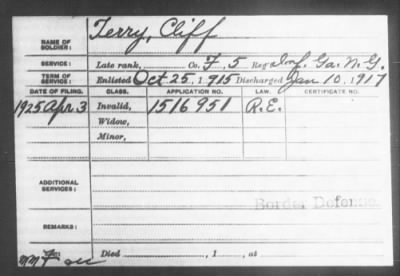 NAME OF SOLDIER: Terry, Cliff
SERVICE: Late rank, Co. F, 5 Reg't Inf. Ga. N. G.
TERM OF SERVICE: Enlisted Oct 25, 1915 Discharged Jan 10, 1917
DATE OF FILING. CLASS. APPLICATION NO. LAW. CERTIFICATE NO.
1925 Apr 3 Invalid, 1516951 R.E.
Widow,
Minor,
ADDITIONAL SERVICES:
Border Defense.
REMARKS:
Died , 1 , at